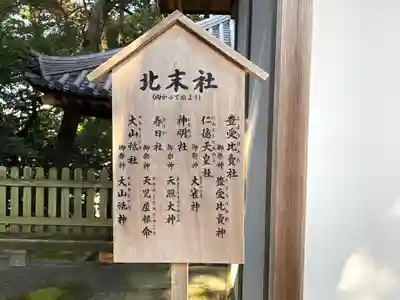 北末社
(向かって右より)
豊受比賣社
御祭神 豊受比賣神
仁徳天皇社
御祭神 大雀神
神明社
御祭神 天照大神
春日社
御祭神 天児屋根命
大山祇社
御祭神 大山祇神